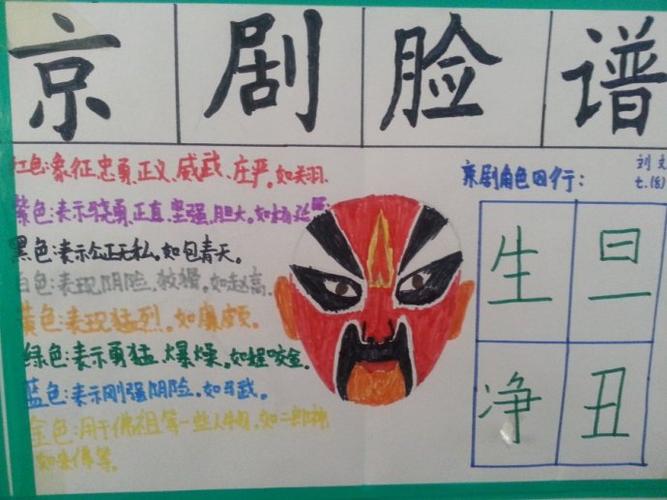 京剧脸谱
红色:象征忠勇、正义、威武、庄严。如关羽.
紫色:表示骁勇、正直、坚强、胆大。如
黑色:表示公正无私。如包青天。
白色:表现阴险、狡猾。如赵高.
黄色:表现猛烈。如廉颇。
绿色:表示勇猛、爆燥。如程咬金.
蓝色:表示刚强阴险。如马武。
金色:用于佛祖等一些人物。如二郎神
如来佛等。
京剧角色四行:
刘文
七.(8)
生 旦
净 丑